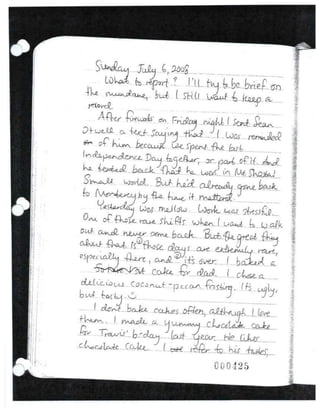 Sunday July 6, 2008
What to report? I'll try to be brief on
the mundane, but I still want to keep a
record.
After fireworks on Friday night I sent Sean
Otwell a text saying that I was reminded
of him because we spent the last
Independence Day together, or part of it. And
he texted back that he was in Mt Shasta!
Small world. But he'd already gone back
to Monterey by the time it mattered.
Yesterday was mellow. Work was stressful.
One of those rare shifts when I want to walk
out and never come back. But the great thing
about that is ① those days are extremely rare,
especially there, and ② it's over. I baked a
cake for dad. I chose a
delicious coconut-pecan frosting. It's ugly,
but tasty.
I don't bake cakes often, although I love
them. I made a yummy chocolate cake
for Travis' b-day last year. He likes
chocolate cake. I refer to his tastes,
000425